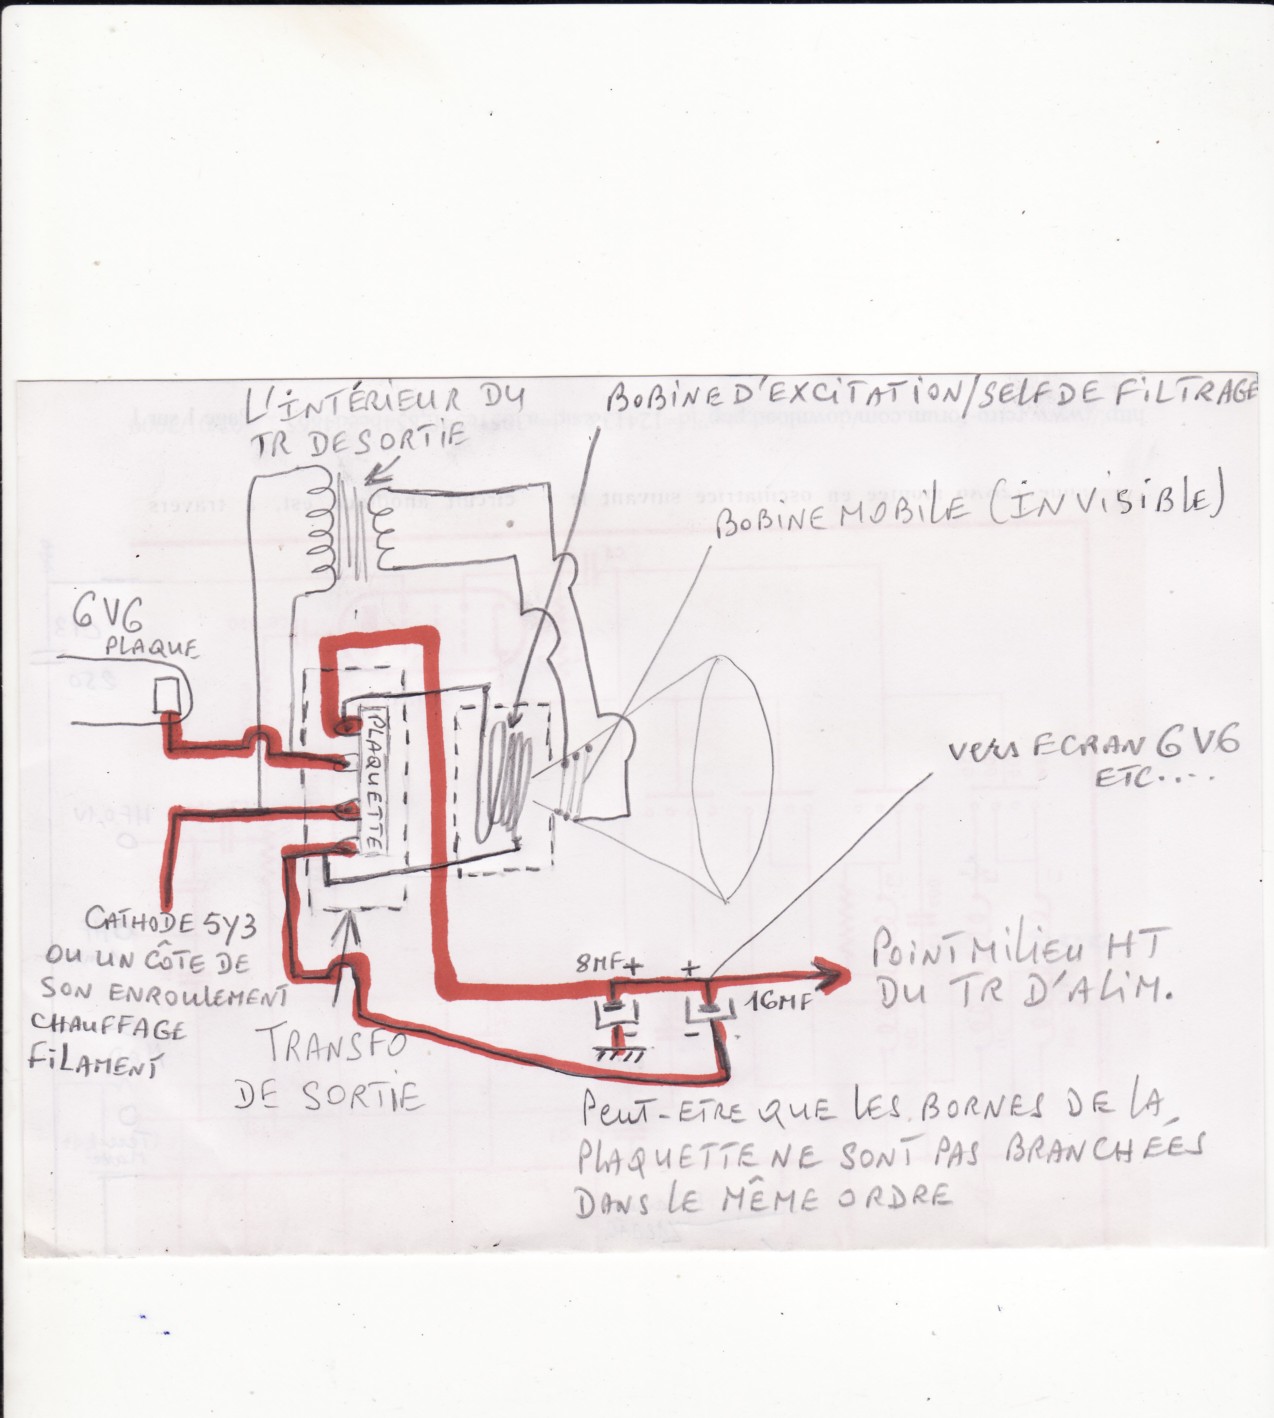 L'INTÉRIEUR DU
TR DE SORTIE
BOBINE D'EXCITATION/SELF DE FILTRAGE
BOBINE MOBILE (INVISIBLE)
6V6
PLAQUE
PLAQUETTE
VERS ECRAN 6V6
ETC.....
CATHODE 5Y3
OU UN CÔTE DE
SON ENROULEMENT
CHAUFFAGE
FILAMENT
TRANSFO
DE SORTIE
8MF +
+
16MF
-
-
POINT MILIEU HT
DU TR D'ALIM.
PEUT-ETRE QUE LES BORNES DE LA
PLAQUETTE NE SONT PAS BRANCHÉES
DANS LE MÊME ORDRE